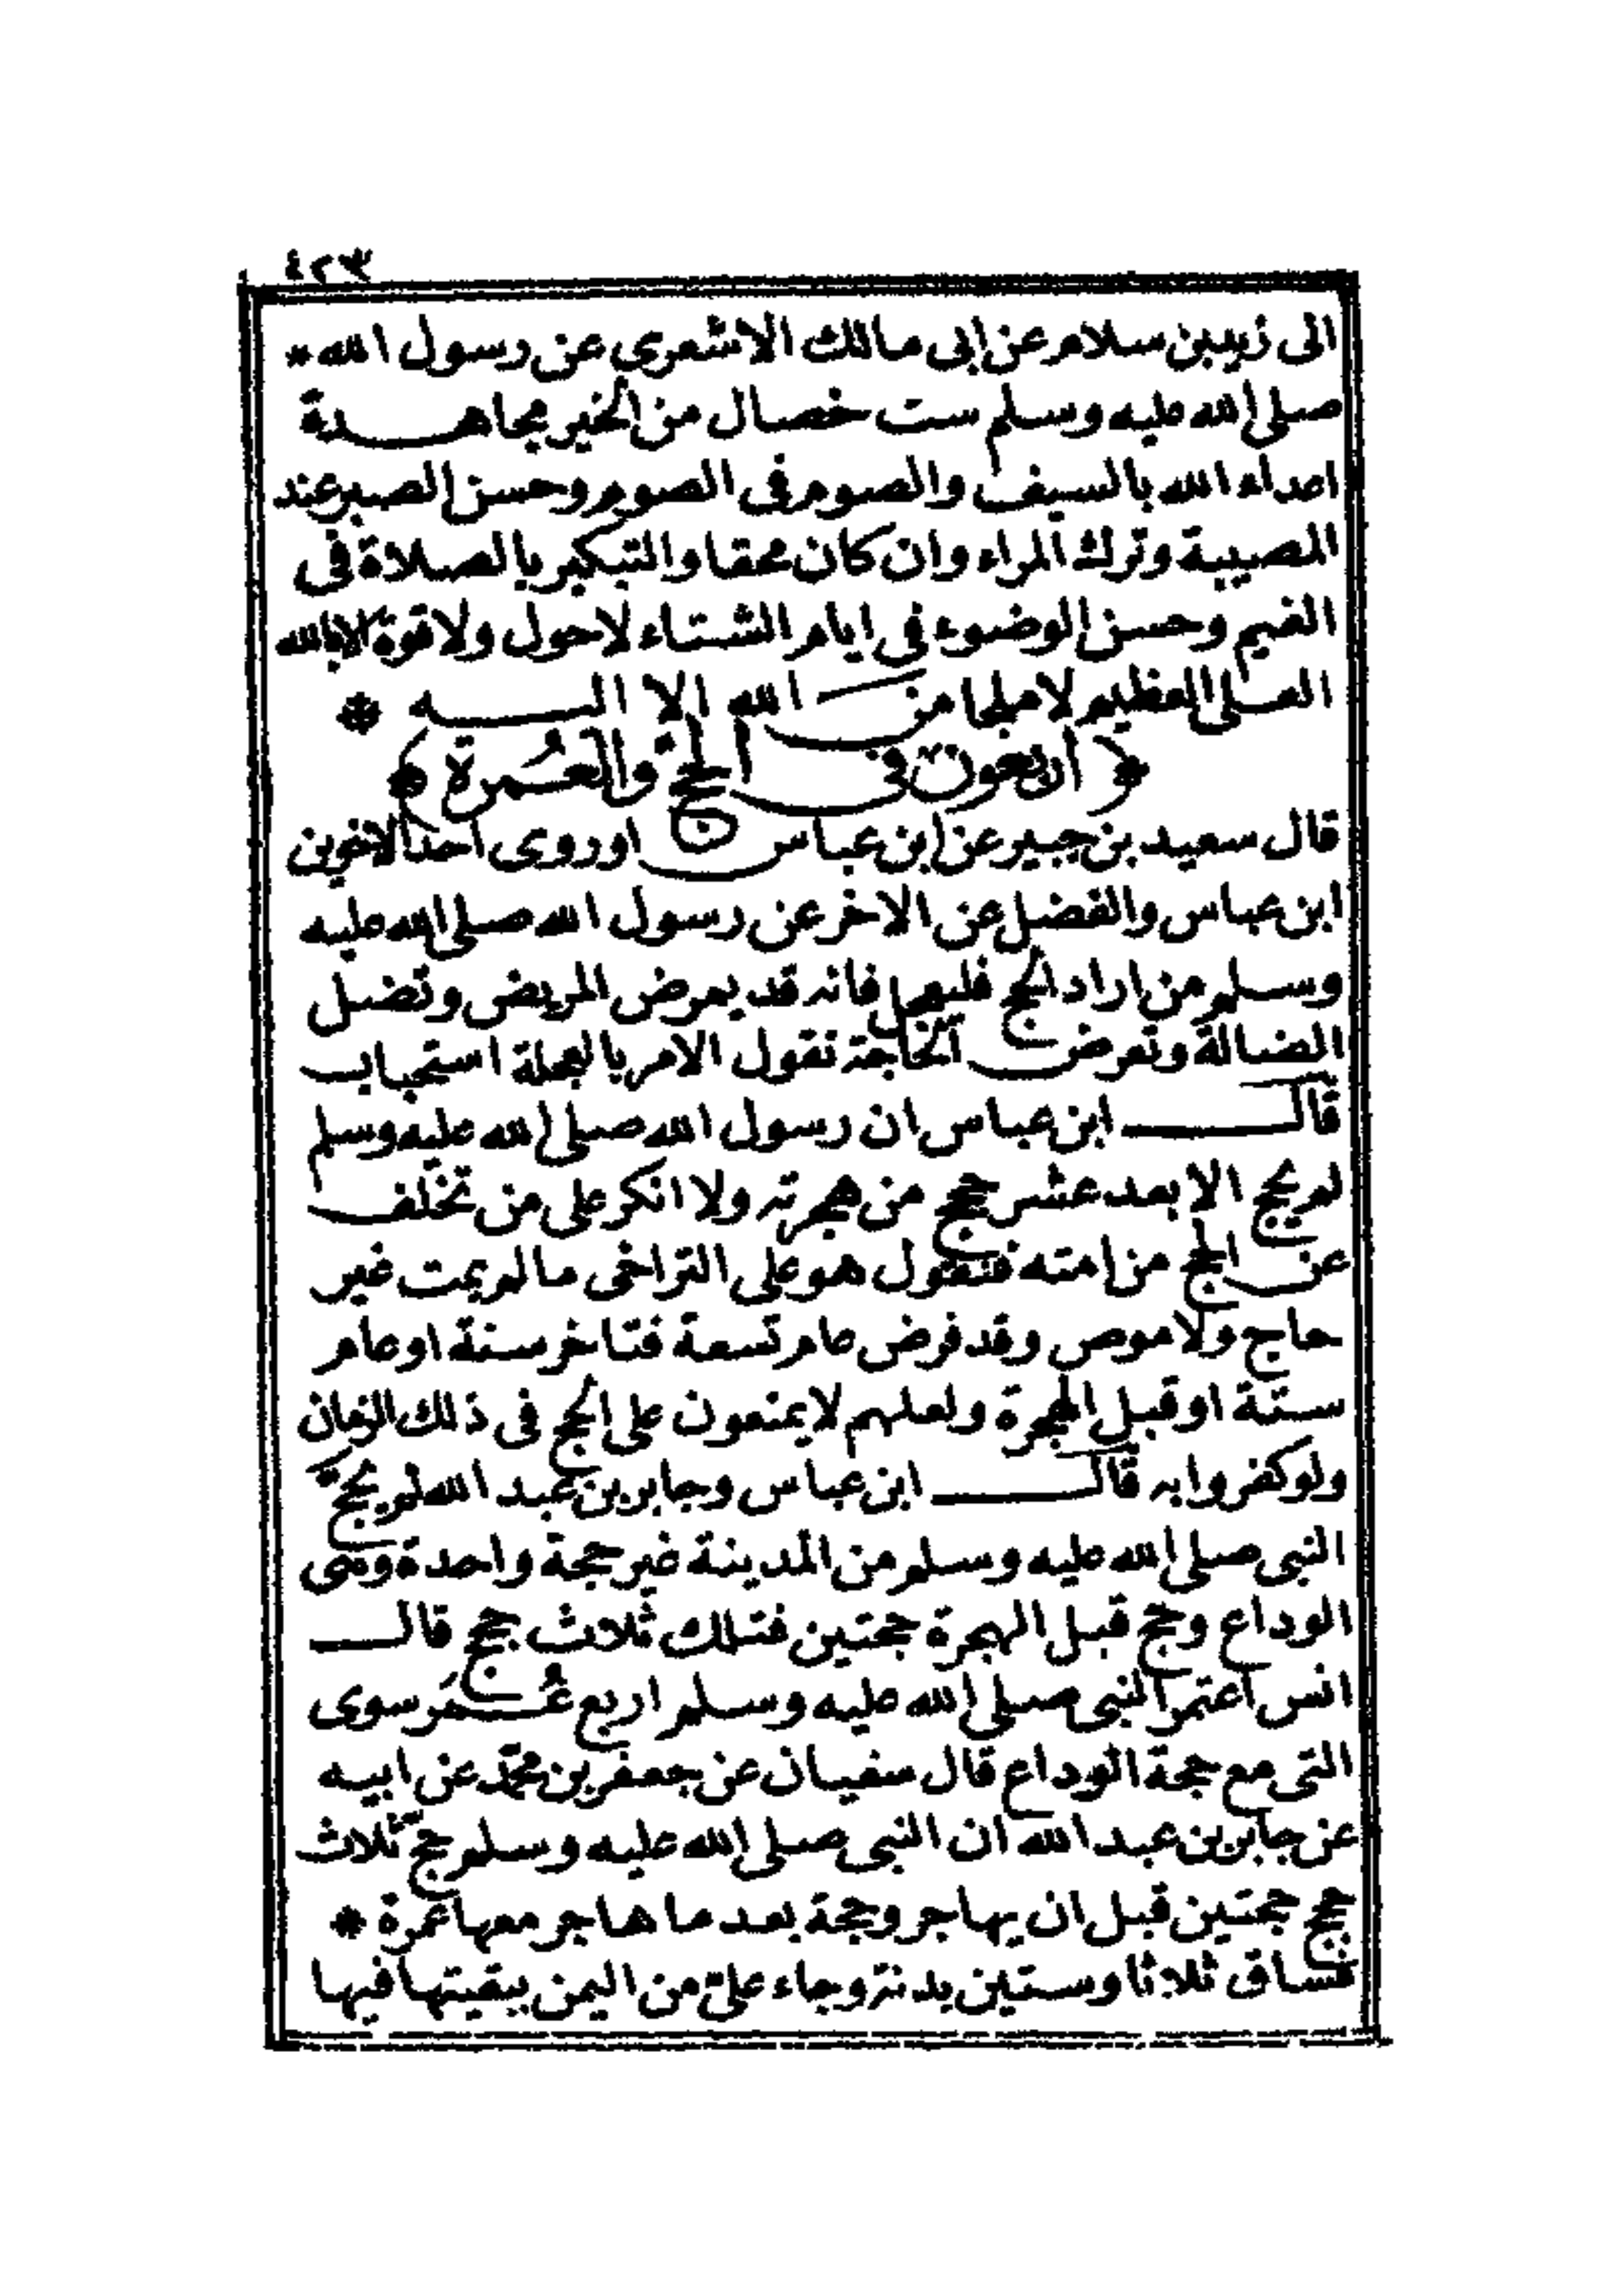 ٤٢٣
الى زيد بن سلام عن ابى مالك الاشعرى عن رسول الله *
صلى الله عليه وسلم ست خصال من الخير مجاهدة
اعداء الله بالسيف والصوم فى الصوم وحسن الصبر عند
المصيبة وترك المراء وان كان محقا والتبكير بالصلاة فى
الغيم وحسن الوضوء فى ايام الشتاء لاحول ولا قوة الا بالله
العلى العظيم لا ملجا من الله الا اليه *
﴿ اربعون فى الحج والعُمرة ﴾
قال سعيد بن جبير عن ابن عباس اوروى احد الاخوين
ابن عباس والفضل عن الاخر عن رسول الله صلى الله عليه
وسلم من اراد الحج فليعجل فانه قد يعرض المريض وتضل
الضالة وتعرض الحاجة نقول الامر بالعجلة استحباب
قال ابن عباس ان رسول الله صلى الله عليه وسلم
لم يحج الا بعد عشر حجج من هجرته ولا انكر على من تخلّف
عن الحج من امته فنقول هو على التراخى ما لم يمت غير
حاج ولا موص وقد فرض عام تسعة فتاخر سنة او عام
ستة او قبل الهجرة ولعلهم لا يمنعون على الحج فى ذلك الزمان
ولو كفروا به قال ابن عباس وجابر بن عبد الله لم يحجّ
النبى صلى الله عليه وسلم من المدينة غير حجة واحدة وهى
الوداع وحج قبل الهجرة حجتين فتلك ثلاث حجج قال
انس اعتمر النبى صلى الله عليه وسلم اربع عُمَر سوى
التى مع حجة الوداع قال سفيان عن جعفر بن محمّد عن ابيه
عن جابر بن عبد الله ان النبى صلى الله عليه وسلم حج ثلاث
حجج حجتين قبل ان يهاجر وحجة بعد ما هاجر معها عمرة *
فساق ثلاثا وستين بدنة وجاء علىّ من اليمن ببقيتها فيها